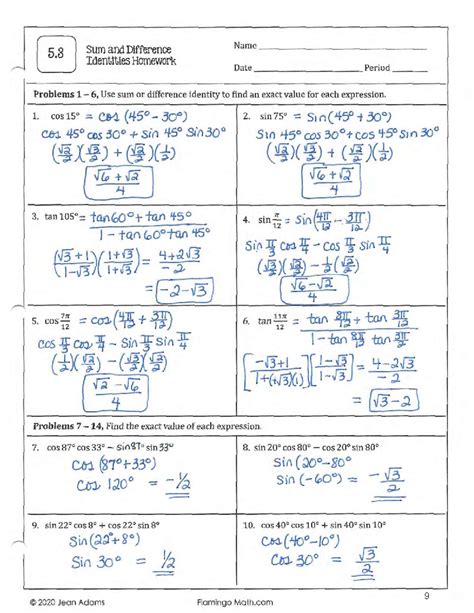 5.3
Sum and Difference
Identities Homework
Name
Date Period
Problems 1 – 6, Use sum or difference identity to find an exact value for each expression.
1. cos 15° = cos (45° - 30°)
cos 45° cos 30° + sin 45° sin 30°
(√3/2)(√2/2) + (√2/2)(1/2)
(√6 + √2)/4
2. sin 75° = sin (45° + 30°)
sin 45° cos 30° + cos 45° sin 30°
(√2/2)(√3/2) + (√2/2)(1/2)
(√6 + √2)/4
3. tan 105° = (tan 60° + tan 45°)/(1 - tan 60° tan 45°)
((√3 + 1)/(1 - √3))((1 + √3)/(1 + √3)) = (4 + 2√3)/-2
= -2 - √3
4. sin π/12 = sin (4π/12 - 3π/12)
sin π/3 cos π/4 - cos π/3 sin π/4
(√3/2)(√2/2) - 1/2(√2/2)
(√6 - √2)/4
5. cos 7π/12 = cos (4π/12 + 3π/12)
cos π/3 cos π/4 - sin π/3 sin π/4
(1/2)(√2/2) - (√3/2)(√2/2)
(√2 - √6)/4
6. tan 11π/12 = (tan 8π/12 + tan 3π/12)/(1 - tan 8π/12 tan 3π/12)
[(-√3 + 1)/(1 + (√3)(1))][(1 - √3)/(1 - √3)] = (4 - 2√3)/-2
= √3 - 2
Problems 7 – 14, Find the exact value of each expression.
7. cos 87° cos 33° − sin 87° sin 33°
cos (87° + 33°)
cos 120° = -1/2
8. sin 20° cos 80° − cos 20° sin 80°
sin (20° - 80°)
sin (-60°) = -√3/2
9. sin 22° cos 8° + cos 22° sin 8°
sin (22° + 8°)
sin 30° = 1/2
10. cos 40° cos 10° + sin 40° sin 10°
cos (40° - 10°)
cos 30° = √3/2
9
© 2020 Jean Adams Flamingo Math.com